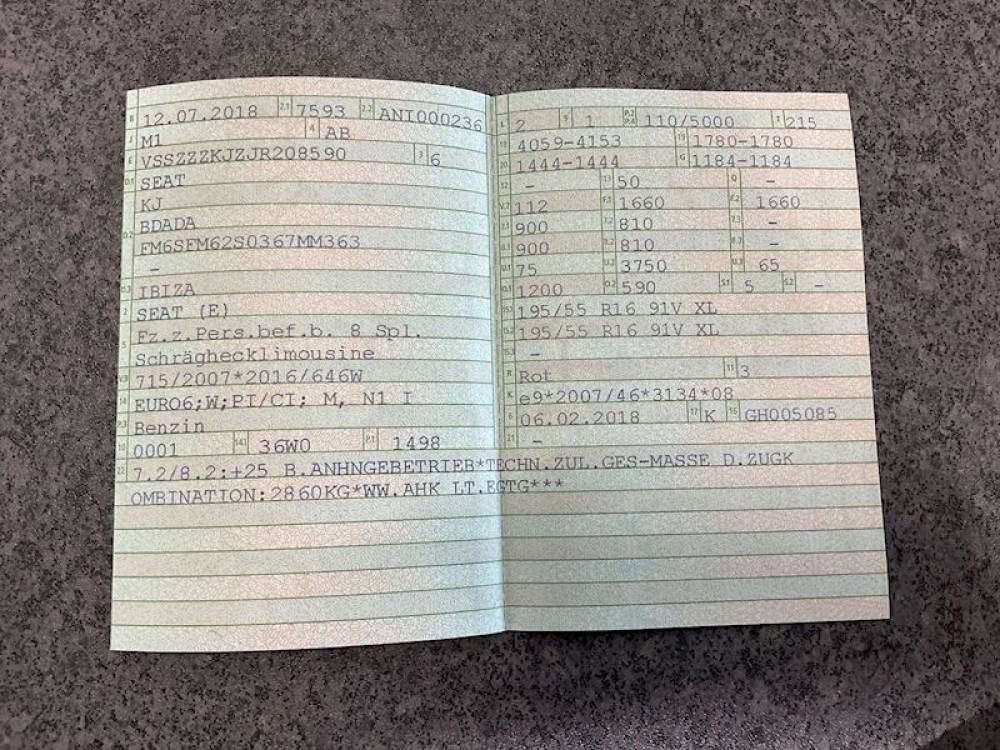 B 12.07.2018 2.1 7593 2.2 ANI000236
J M1 4 AB
E VSSZZZKJZJR208590 3 6
D.1 SEAT
KJ
D.2 BDADA
FM6SFM62S0367MM363
-
D.3 IBIZA
2 SEAT (E)
5 Fz.z.Pers.bef.b. 8 Spl.
Schräghecklimousine
V.9 715/2007*2016/646W
14 EURO6;W;PI/CI; M, N1 I
P.3 Benzin
10 0001 14.1 36W0 P.1 1498
22 7.2/8.2:+25 B.ANHNGEBETRIEB*TECHN.ZUL.GES-MASSE D.ZUGK
OMBINATION:2860KG*WW.AHK LT.EGTG***
L 2 9 1 P.2 P.4 110/5000 T 215
18 4059-4153 19 1780-1780
20 1444-1444 G 1184-1184
12 - 13 50 Q -
V.7 112 F.1 1660 F.2 1660
7.1 900 7.2 810 7.3 -
8.1 900 8.2 810 8.3 -
U.1 75 U.2 3750 U.3 65
O.1 1200 O.2 590 S.1 5 S.2 -
15.1 195/55 R16 91V XL
15.2 195/55 R16 91V XL
15.3 -
R Rot 11 3
K e9*2007/46*3134*08
6 06.02.2018 17 K 16 GH005085
21 -